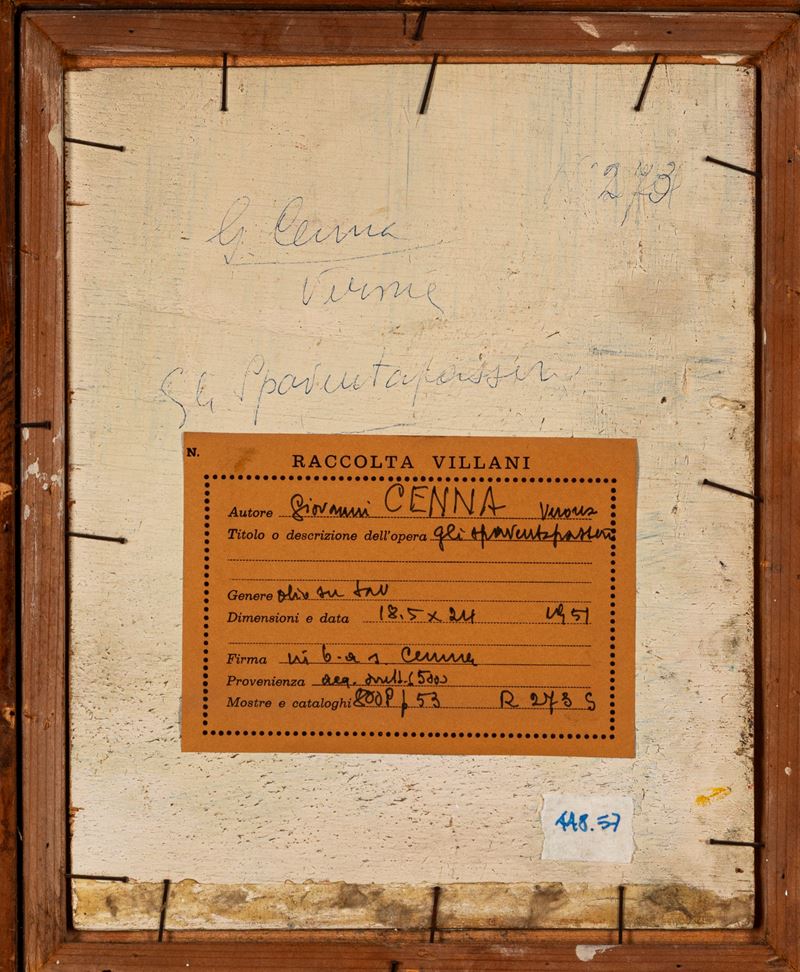 273
G. Cenna
Verona
Gli Spaventapasseri
N.
RACCOLTA VILLANI
Autore Giovanni CENNA Verona
Titolo o descrizione dell'opera gli spaventapasseri
Genere olio su tav
Dimensioni e data 18.5 x 24 1951
Firma in b. a s. Cenna
Provenienza acq.
Mostre e cataloghi 800P p 53 R 273 S
448.57